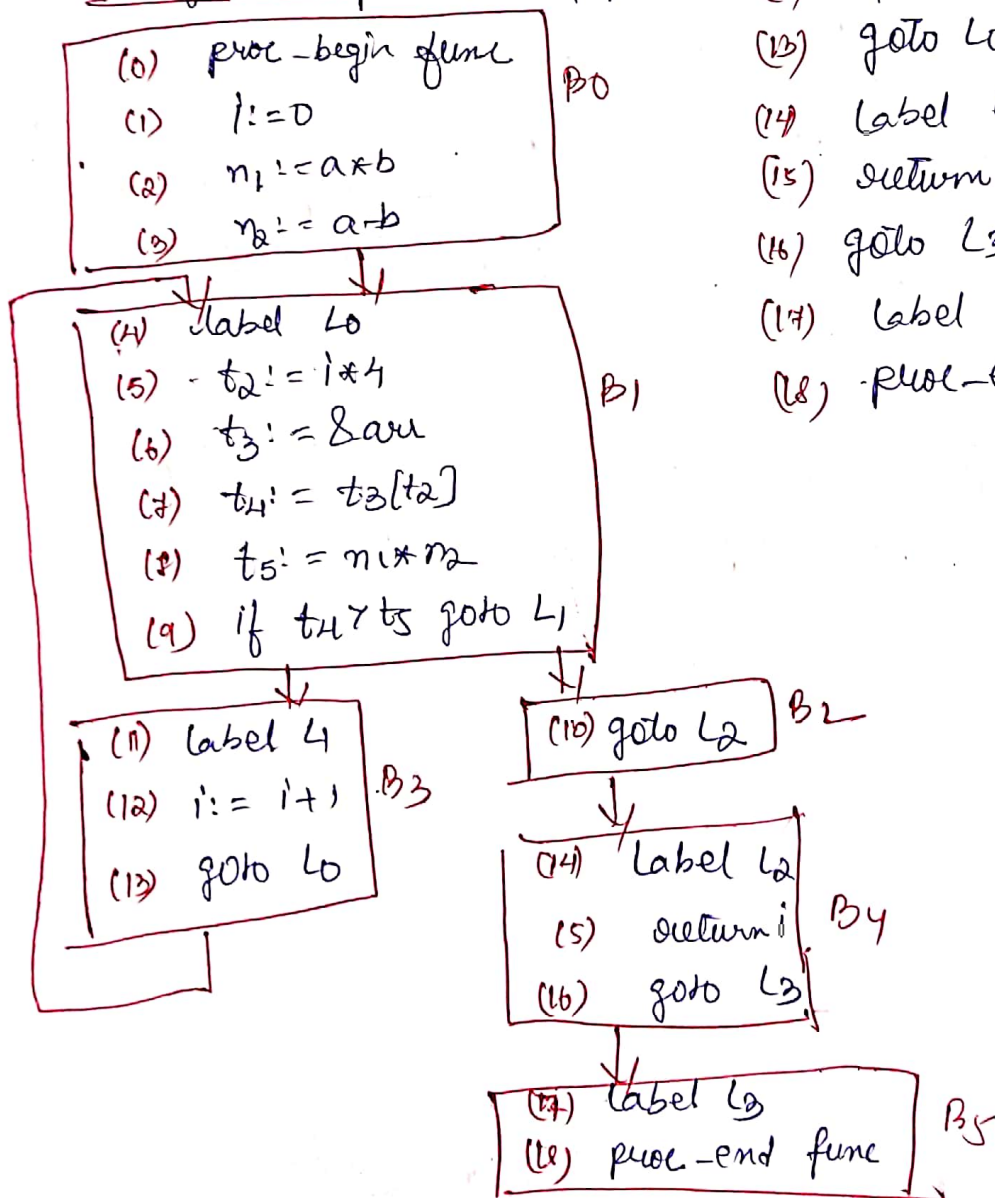 (0) proc-begin func
(1) i:=0
(2) n1:=a*b
(3) n2:=a-b
B0
(4) label L0
(5) t2:=i*4
(6) t3:=&arr
(7) t4:=t3[t2]
(8) t5:=n1*n2
(9) if t4>t5 goto L1
B1
(10) goto L2
B2
(11) label L1
(12) i:=i+1
(13) goto L0
B3
(14) label L2
(5) return i
(16) goto L3
B4
(17) label L3
(18) proc-end func
B5
(13) goto
(14) label
(15) return
(16) goto
(17) label
(18) proc-